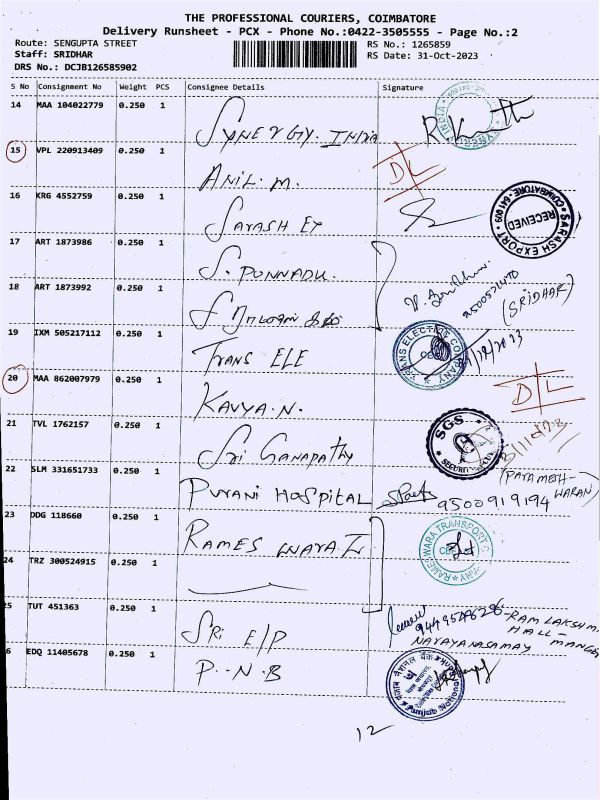 THE PROFESSIONAL COURIERS, COIMBATORE
Delivery Runsheet - PCX - Phone No.:0422-3505555 - Page No.:2
Route: SENGUPTA STREET RS No.: 1265859
Staff: SRIDHAR RS Date: 31-Oct-2023
DRS No.: DCJB126585902
S No Consignment No Weight PCS Consignee Details Signature
14 MAA 104022779 0.250 1 SYNERGY. INDIA
INDIA
15 VPL 220913409 0.250 1 ANIL. M. DL
16 KRG 4552759 0.250 1 SARASH EX
SARASH EXPORT COIMBATORE - 641 009
RECEIVED
17 ART 1873986 0.250 1 S. PONNADU.
9500571470
(SRIDHAR)
18 ART 1873992 0.250 1
19 IXM 505217112 0.250 1 TRANS ELE
TRANS ELECTRIC COMPANY
20 MAA 862007979 0.250 1 KAVYA. N. DL
21 TVL 1762157 0.250 1 Sri Ganapathy
SGS
22 SLM 331651733 0.250 1 PURANI HOSPITAL
(PARAMESH-
WARAN)
9500919194
23 DDG 118660 0.250 1 RAMESWARA
RAMESWARA TRANSPORT
24 TRZ 300524915 0.250 1
25 TUT 451363 0.250 1 SRI E/P
9449527626 - RAM LAKSHM
HALL -
NARAYANASAMAY
6 EDQ 11405678 0.250 1 P. N. B
पंजाब नैशनल बैंक
Punjab National
12